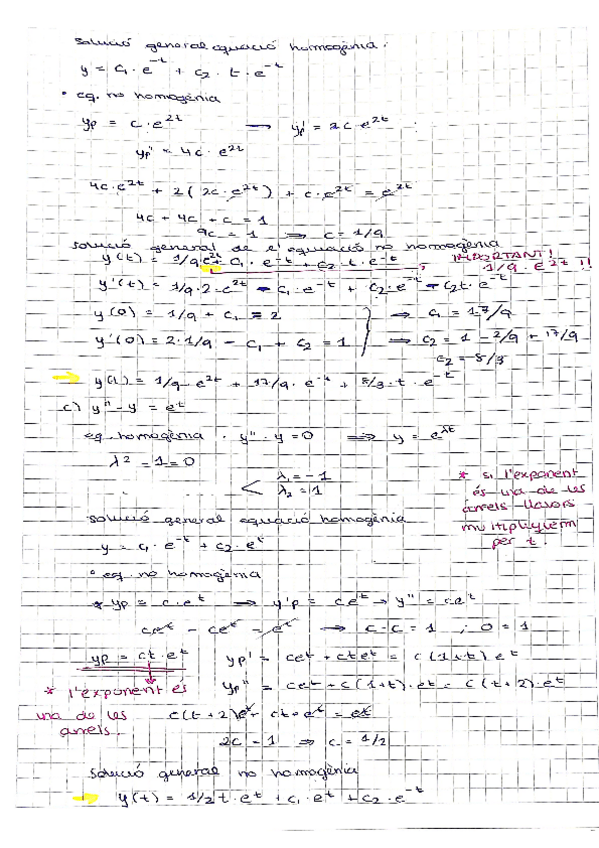 solució general equació homogènia.
y = c₁ · e^-t + c₂ · t · e^-t
• eq. no homogènia
yp = c · e^2t → yp' = 2c · e^2t
yp'' = 4c · e^2t
4c · e^2t + 2(2c · e^2t) + c · e^2t = e^2t
4c + 4c + c = 1
9c = 1 ⇒ c = 1/9
solució general de l'equació no homogènia
y(t) = 1/9 · e^2t + c₁ · e^-t + c₂ · t · e^-t IMPORTANT!
1/9 · e^2t !!
y'(t) = 1/9 · 2 · e^2t - c₁ · e^-t + c₂ · e^-t - c₂t · e^-t
y(0) = 1/9 + c₁ = 2 ⇒ c₁ = 17/9
y'(0) = 2 · 1/9 - c₁ + c₂ = 1 ⇒ c₂ = 1 - 2/9 + 17/9
c₂ = 8/3
⇒ y(t) = 1/9 · e^2t + 17/9 · e^-t + 8/3 · t · e^-t
c) y'' - y = e^t
eq. homogènia · y'' - y = 0 ⇒ y = e^λt
λ² - 1 = 0
λ₁ = -1
λ₂ = 1
* si l'exponent
és una de les
arrels llavors
multipliquem
per t.
solució general equació homogènia
y = c₁ · e^-t + c₂ · e^t
• eq. no homogènia
* yp = c · e^t → y'p = ce^t → y'' = ce^t
ce^t - ce^t = e^t → c - c = 1 ; 0 = 1
yp = ct · e^t yp' = ce^t + cte^t = c(1+t)e^t
* l'exponent és
una de les
arrels.
yp'' = ce^t + c(1+t) · e^t = c(t+2) · e^t
c(t+2)e^t - ct · e^t = e^t
2c = 1 ⇒ c = 1/2
solució general no homogènia
⇒ y(t) = 1/2 t · e^t + c₁ · e^t + c₂ · e^-t